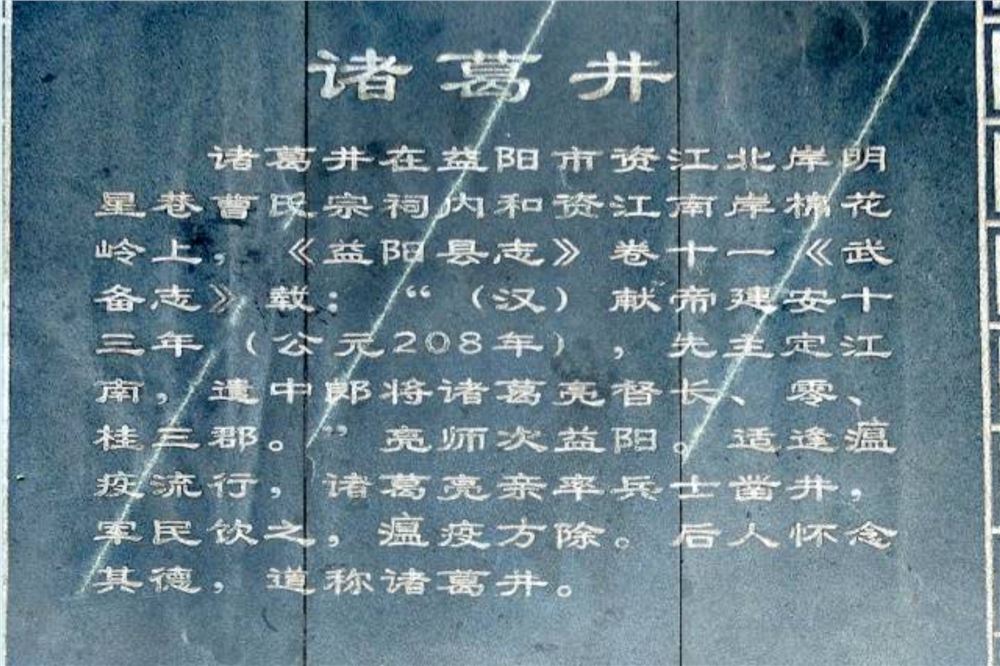 诸葛井
诸葛井在益阳市资江北岸明
星巷曹氏宗祠内和资江南岸棉花
岭上，《益阳县志》卷十一《武
备志》载：“（汉）献帝建安十
三年（公元208年），先主定江
南，遣中郎将诸葛亮督长、零、
桂三郡。”亮师次益阳。适逢瘟
疫流行，诸葛亮亲率兵士凿井，
军民饮之，瘟疫方除。后人怀念
其德，道称诸葛井。